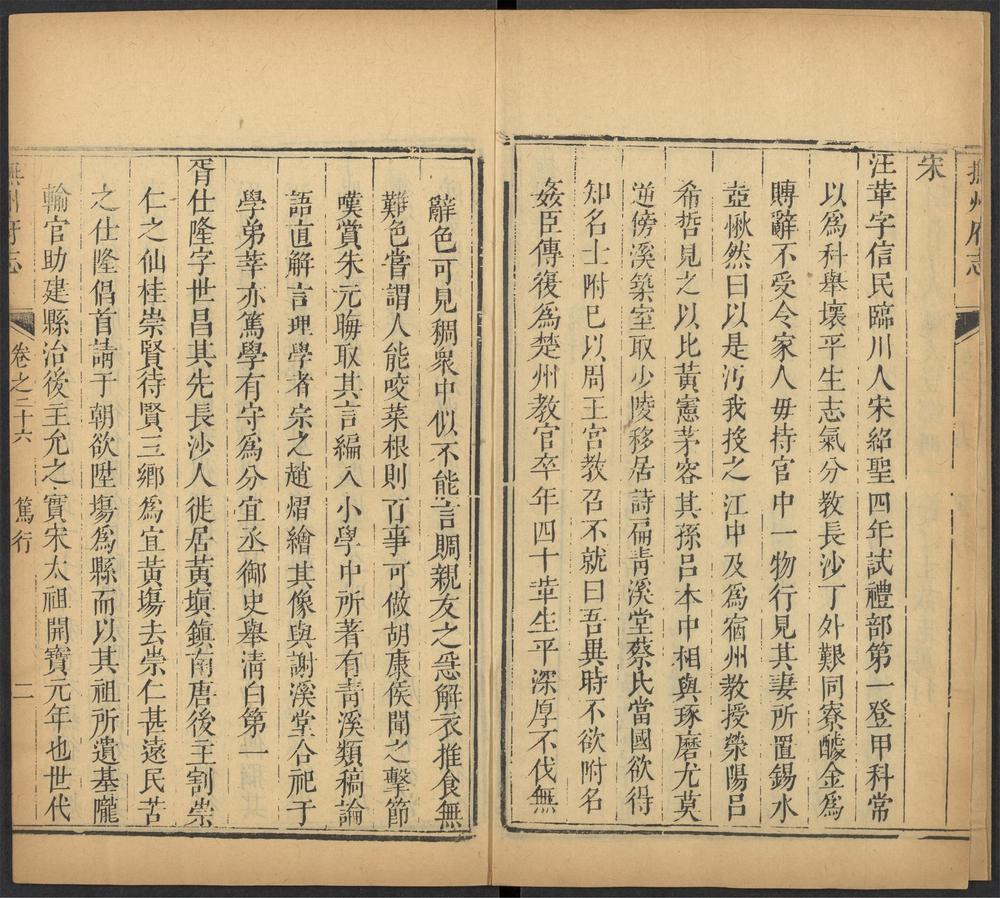 撫州府志
宋
汪革字信民臨川人宋紹聖四年試禮部第一登甲科常
以爲科舉壞平生志氣分教長沙丁外艱同寮醵金爲
賻辭不受令家人毋持官中一物行見其妻所置錫水
壺愀然曰以是汚我投之江中及爲宿州教授滎陽呂
希哲見之以比黃憲茅容其孫呂本中相與琢磨尤莫
逆傍溪築室取少陵移居詩扁靑溪堂蔡氏當國欲得
知名士附已以周王宮教召不就曰吾異時不欲附名
姦臣傳復爲楚州教官卒年四十革生平深厚不伐無
辭色可見稠衆中似不能言賙親友之急解衣推食無
難色嘗謂人能咬菜根則百事可做胡康侯聞之擊節
嘆賞朱元晦取其言編入小學中所著有靑溪類稿論
語直解言理學者宗之趙熠繪其像與謝溪堂合祀于
學弟莘亦篤學有守爲分宜丞御史舉淸白第一
胥仕隆字世昌其先長沙人徙居黃塡鎭南唐後主割崇
仁之仙桂崇賢待賢三鄉爲宜黃塲去崇仁甚遠民苦
之仕隆倡首請于朝欲陞塲爲縣而以其祖所遺基隴
輸官助建縣治後主允之實宋太祖開寶元年也世代
撫州府志
卷之二十六
篤行
二